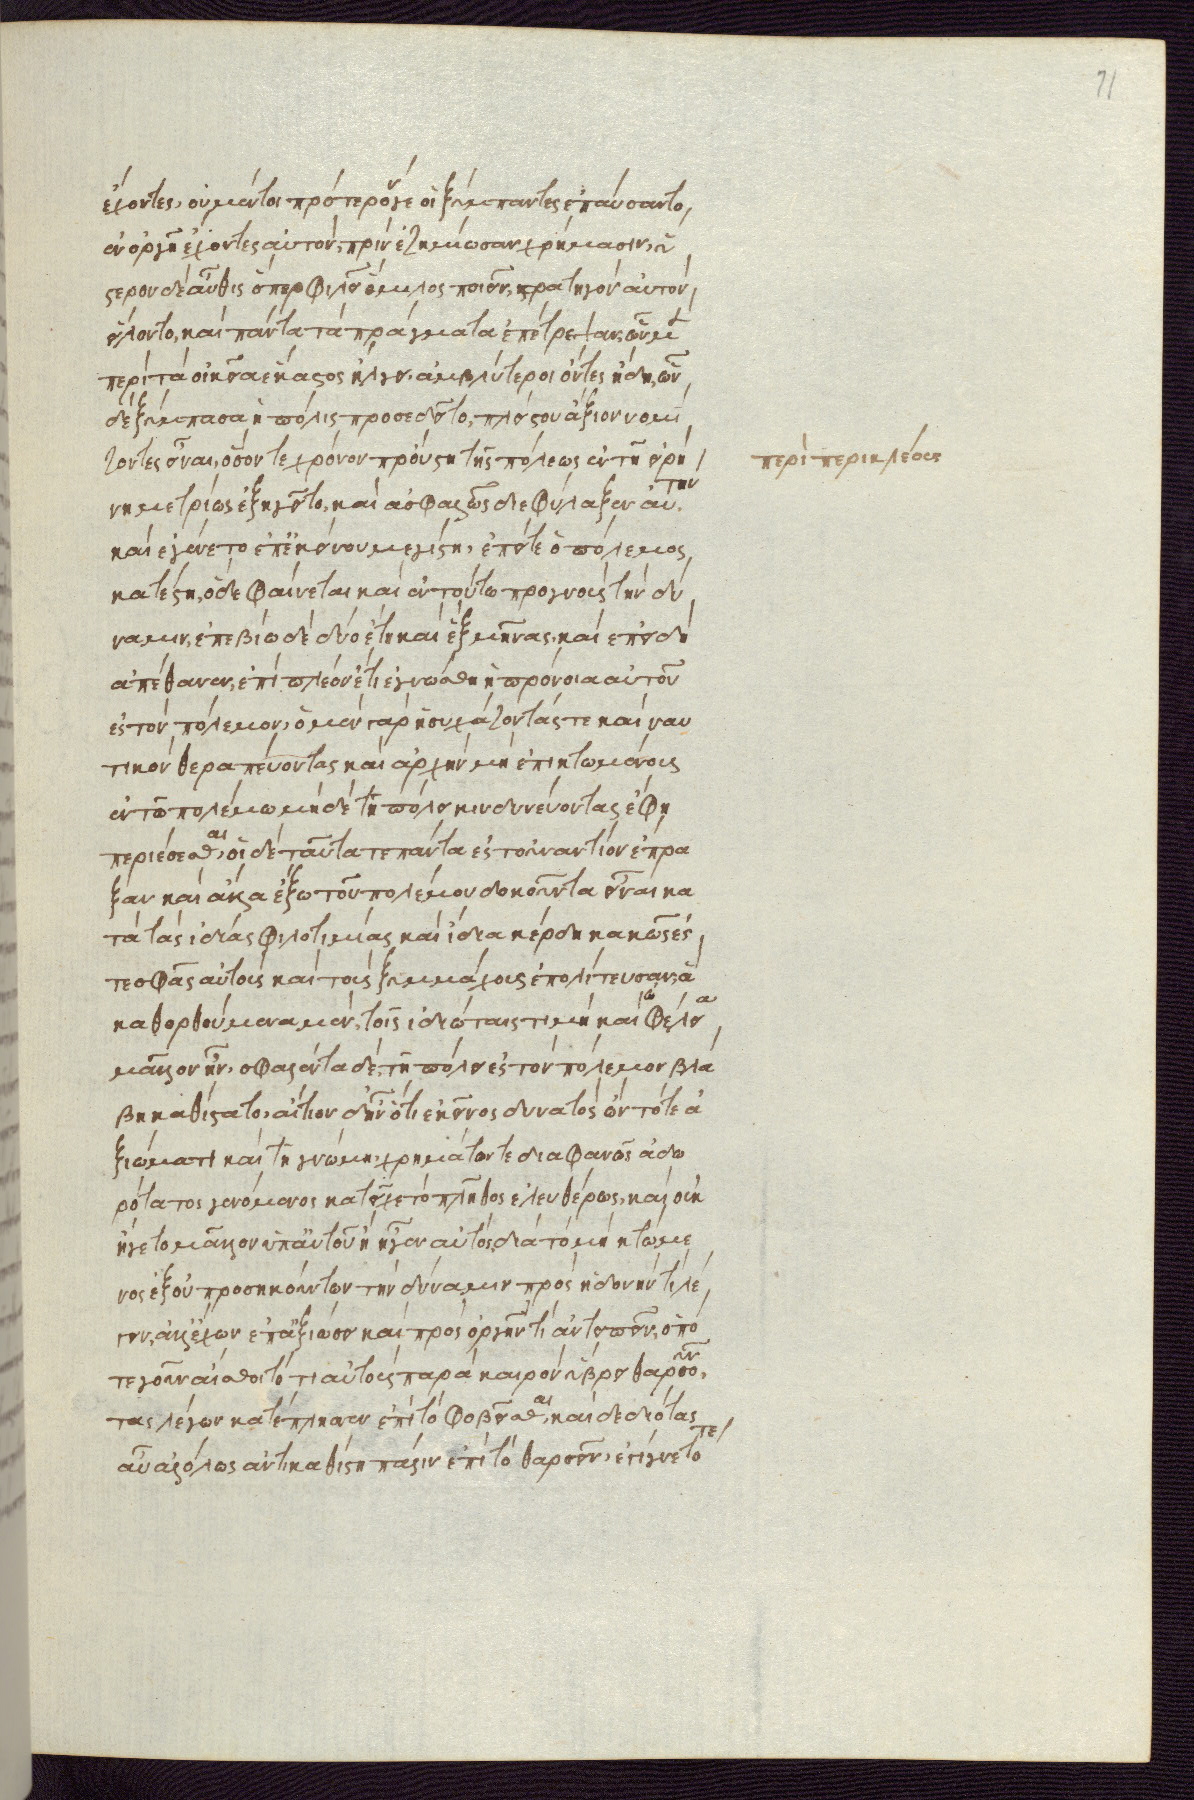 71
ἔχοντες, οὐ μέντοι πρότερόν γε οἱ ξύμπαντες ἐπαύσαντο
ἐν ὀργῇ ἔχοντες αὐτὸν, πρὶν ἐζημίωσαν χρήμασιν, ὕ
στερον δὲ αὖθις ὅπερ φιλεῖ ὅμιλος ποιεῖν, στρατηγὸν αὐτὸν
εἵλοντο, καὶ πάντα τὰ πράγματα ἐπέτρεψαν, ὧν μὲν
περὶ τὰ οἰκεῖα ἕκαστος ἤλγει, ἀμβλύτεροι ὄντες ἤδη, ὧν
δὲ ξύμπασα ἡ πόλις προσεδεῖτο, πλείστου ἄξιον νομί
ζοντες εἶναι, ὅσον τε χρόνον προύστη τῆς πόλεως ἐν τῇ εἰρή
νη μετρίως ἐξηγεῖτο, καὶ ἀσφαλῶς διεφύλαξεν αὐτὴν
καὶ ἐγένετο ἐπ' ἐκείνου μεγίστη, ἐπεί τε ὁ πόλεμος
κατέστη, ὁ δὲ φαίνεται καὶ ἐν τούτω προγνοὺς τὴν δύ
ναμιν, ἐπεβίω δὲ δύο ἔτη καὶ ἓξ μῆνας, καὶ ἐπειδὴ
ἀπέθανεν, ἐπὶ πλέον ἔτι ἐγνώσθη ἡ πρόνοια αὐτοῦ
ἐς τὸν πόλεμον, ὁ μὲν γὰρ ἡσυχάζοντάς τε καὶ ναυ
τικὸν θεραπεύοντας καὶ ἀρχὴν μὴ ἐπικτωμένους
ἐν τῶ πολέμω μηδὲ τῇ πόλει κινδυνεύοντας ἔφη
περιέσεσθαι, οἱ δὲ ταῦτά τε πάντα ἐς τοὐναντίον ἔπρα
ξαν καὶ ἄλλα ἔξω τοῦ πολέμου δοκοῦντα εἶναι κα
τὰ τὰς ἰδίας φιλοτιμίας καὶ ἴδια κέρδη κακῶς ἔς
τε σφᾶς αὐτοὺς καὶ τοὺς ξυμμάχους ἐπολίτευσαν, ἃ
κατορθούμενα μὲν, τοῖς ἰδιώταις τιμὴ καὶ ὠφέλεια
μᾶλλον ἦν, σφαλέντα δὲ, τῇ πόλει ἐς τὸν πόλεμον βλά
βη καθίστατο, αἴτιον δ' ἦν ὅτι ἐκεῖνος δυνατὸς ὢν τότε ἀ
ξιώματι καὶ τῇ γνώμη, χρημάτων τε διαφανῶς ἀδω
ρότατος γενόμενος κατεῖχε τὸ πλῆθος ἐλευθέρως, καὶ οὐκ
ἤγετο μᾶλλον ὑπ' αὐτοῦ ἢ ἦγεν αὐτὸς, διὰ τὸ μὴ κτώμε
νος ἐξ οὐ προσηκόντων τὴν δύναμιν πρὸς ἡδονήν τι λέ
γειν, ἀλλ' ἔχων ἐπ' ἀξιώσει καὶ πρὸς ὀργήν τι ἀντειπεῖν, ὁπό
τε γοῦν αἴσθοιτό τι αὐτοὺς παρὰ καιρὸν ὕβρει θαρσοῦν
τας λέγων κατέπλησσεν ἐπὶ τὸ φοβεῖσθαι, καὶ δεδιότας
αὖ ἀλόγως ἀντικαθίστη πάλιν ἐπὶ τὸ θαρσεῖν, ἐγίγνετό τε
περὶ περικλέους